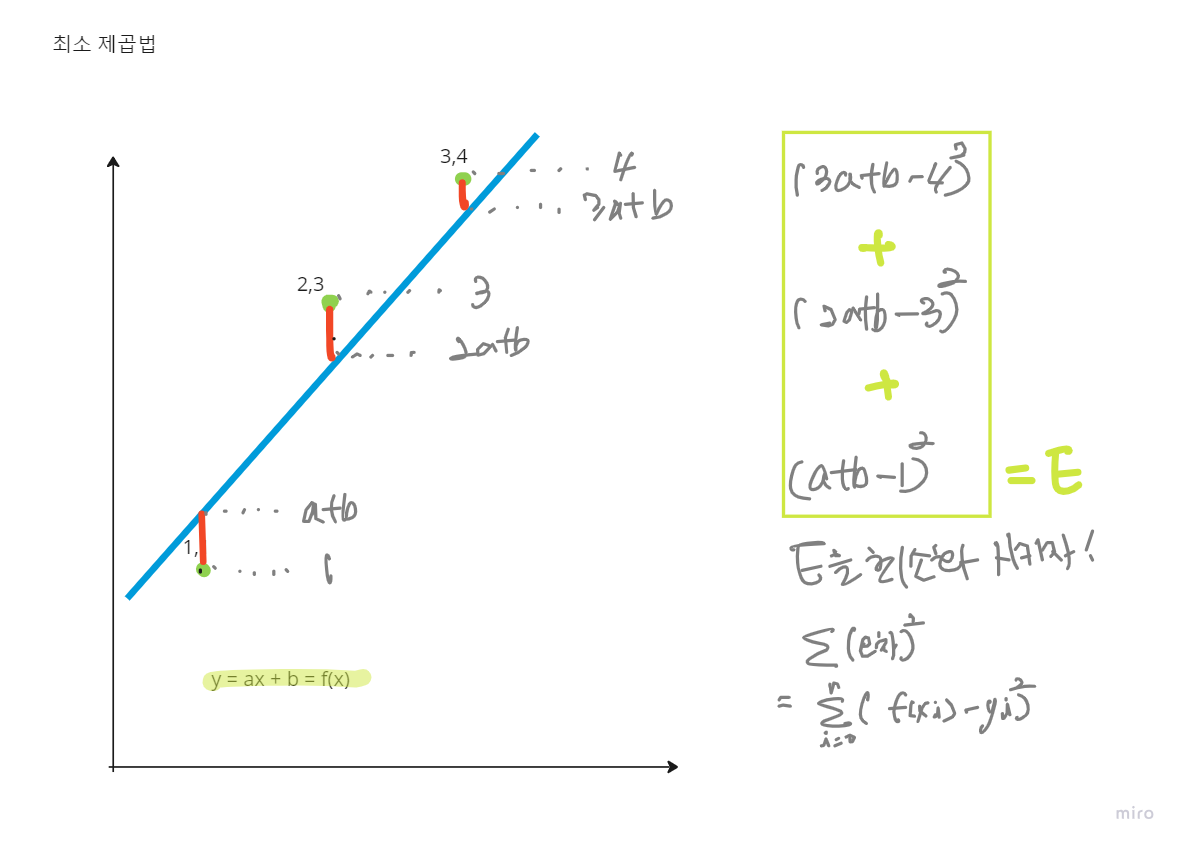 최소 제곱법
3,4
4
3a+b
2,3
3
2a+b
a+b
1,
1
y = ax + b = f(x)
(3a+b-4)²
+
(2a+b-3)²
+
(a+b-1)²
= E
E를 최소화 시키자!
∑(오차)²
= ∑ⁿᵢ₌₀( f(xi) - yi)²
miro